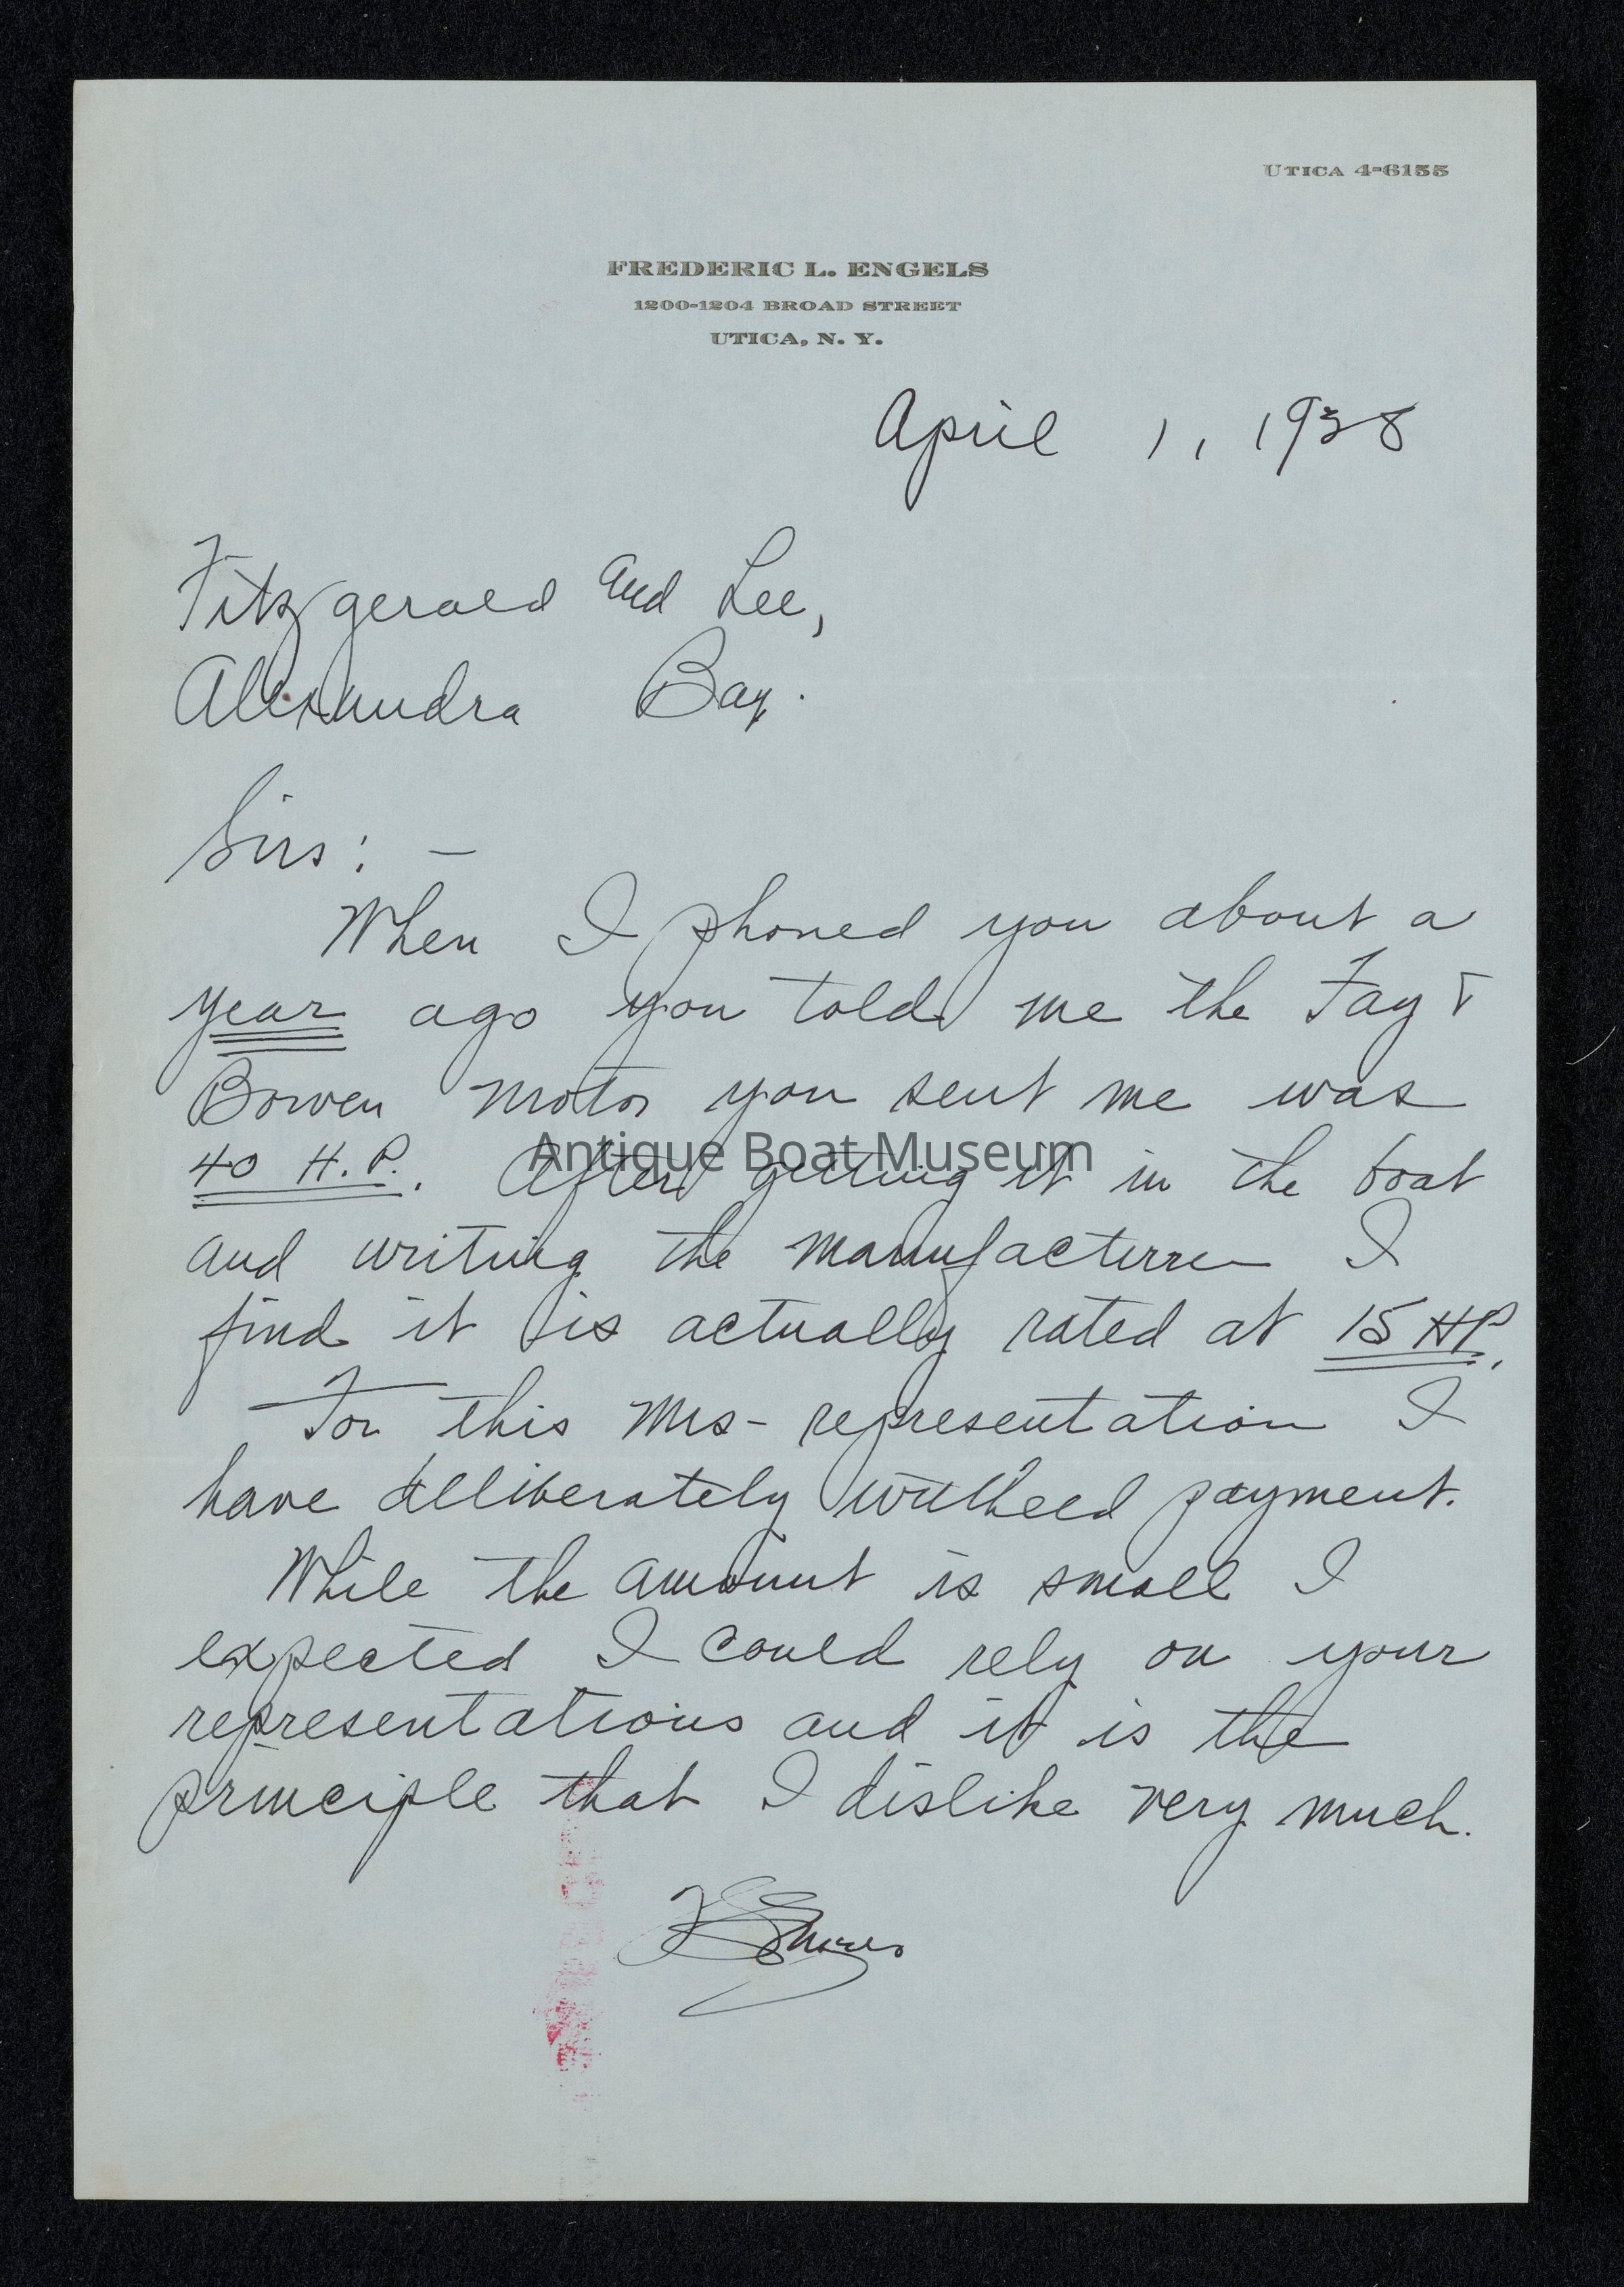 UTICA 4-6155
FREDERIC L. ENGELS
1200-1204 BROAD STREET
UTICA, N. Y.
April 1, 1938
Fitzgerald and Lee,
Alexandra Bay.
Sirs: —
When I phoned you about a
year ago you told me the Fay &
Bowen motor you sent me was
40 H.P. After getting it in the boat
Antique Boat Museum
and writing the manufacturer I
find it is actually rated at 15 HP.
For this mis-representation I
have delliberately withheld payment.
While the amount is small I
expected I could rely on your
representations and it is the
principle that I dislike very much.